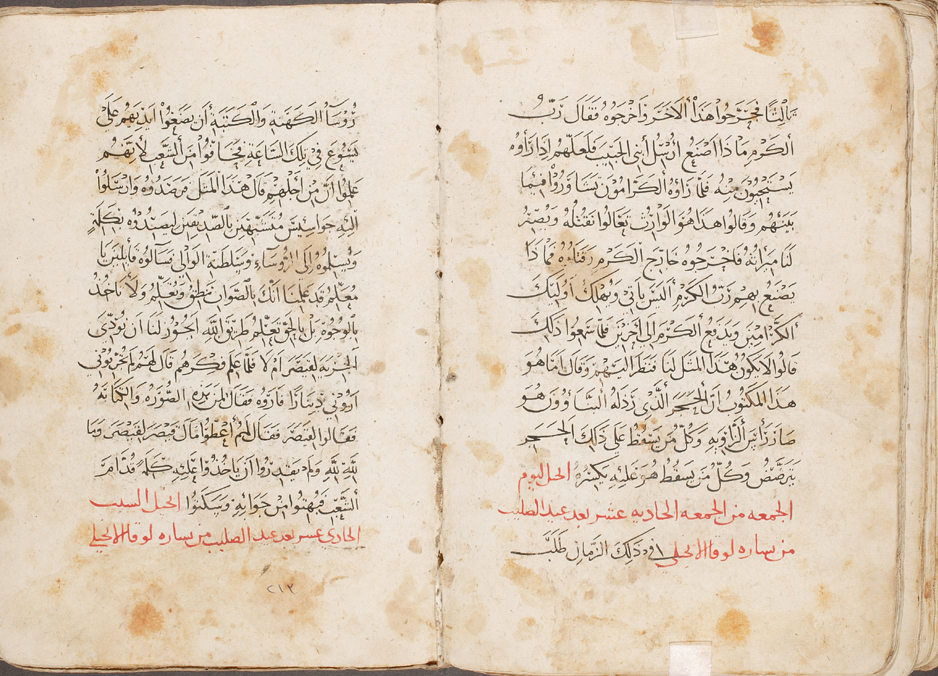 بالثا فجرحوا هذا الاخر واخرجوه فقال رب
الكرم ماذا اصنع ارسل ابني الحبيب فلعلهم اذا راوه
يستحيون منه فلما راوه الكرامون تشاوروا فيما
بينهم وقالوا هذا هو الوارث تعالوا نقتله ويصير
لنا ميراثه فاخرجوه خارج الكرم وقتلوه فماذا
يصنع بهم رب الكرم اليس ياتي ويهلك اوليك
الكرامين ويدفع الكرم الى اخرين فلما سمعوا ذلك
قالوا لا يكون هذا المثل لنا فنظر اليهم وقال لهم ما هو
هذا المكتوب ان الحجر الذي رذله البناوون هو
صار راس الزاويه وكل من يسقط على ذلك الحجر
يترضض وكل من يسقط هو عليه يكسره اليوم
الجمعه من الجمعه الحاديه عشر بعد عيد الصليب
من بشاره لوقا الانجيلي في ذلك الزمان طلب
روسا الكهنة والكتبة ان يضعوا ايديهم على
يسوع في تلك الساعة فخافوا من الشعب لانهم
علموا ان من اجلهم قال هذا المثل فرصدوه وارسلوا
اليه جواسيس متشبهين بالصديقين ليصيدوه بكلمة
ويسلموه الى الروساء وسلطنة الوالي فسالوه قايلين يا
معلم قد علمنا انك بالصواب تنطق وتعلم ولا تاخذ
بالوجوه بل بالحق تعلم طريق الله ايجوز لنا ان نودي
الجزيه لقيصر ام لا فلما علم مكرهم قال لهم لم تجربوني
اروني دينارا فاروه فقال لمن هذه الصوره والكتابة
فقالوا لقيصر فقال لهم اعطوا مال قيصر لقيصر وما
لله لله ولم يقدروا ان ياخذوا عليه كلمه قدام
الشعب فبهتوا من جوابه وسكتوا السبت
الحادي عشر بعد عيد الصليب من بشاره لوقا الانجيلي
٢١٣